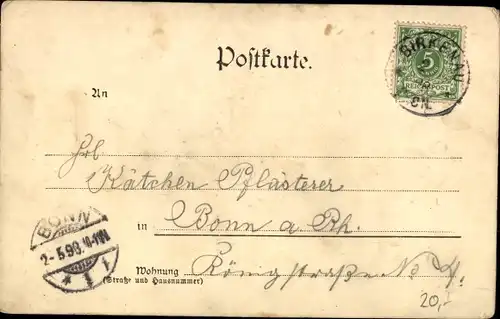 Postkarte.
BIRKENAU
5
REICHSPOST
An
Frl.
Kätchen Pflästerer
in Bonn a. Rh.
BONN
2-5.98.10-11V.
* 1 f
Wohnung
(Straße und Hausnummer)
No 4.
20,-